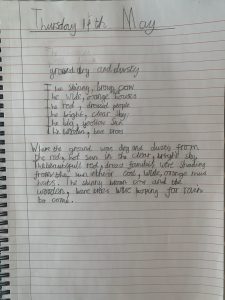 Thursday 14th May
ground dry and dusty
The shining, brown cow
The wide, orange houses
The red, dressed people
The bright, clear sky
The big, yellow sun
The wooden, bare trees
Where the ground was dry and dusty from
the red, hot sun in the clear, bright sky.
The beautiful red, dressed families were shading
from the sun where cool, wide, orange mud
huts. The shiny brown cow and the
wooden, bare trees were hoping for rain
to come.